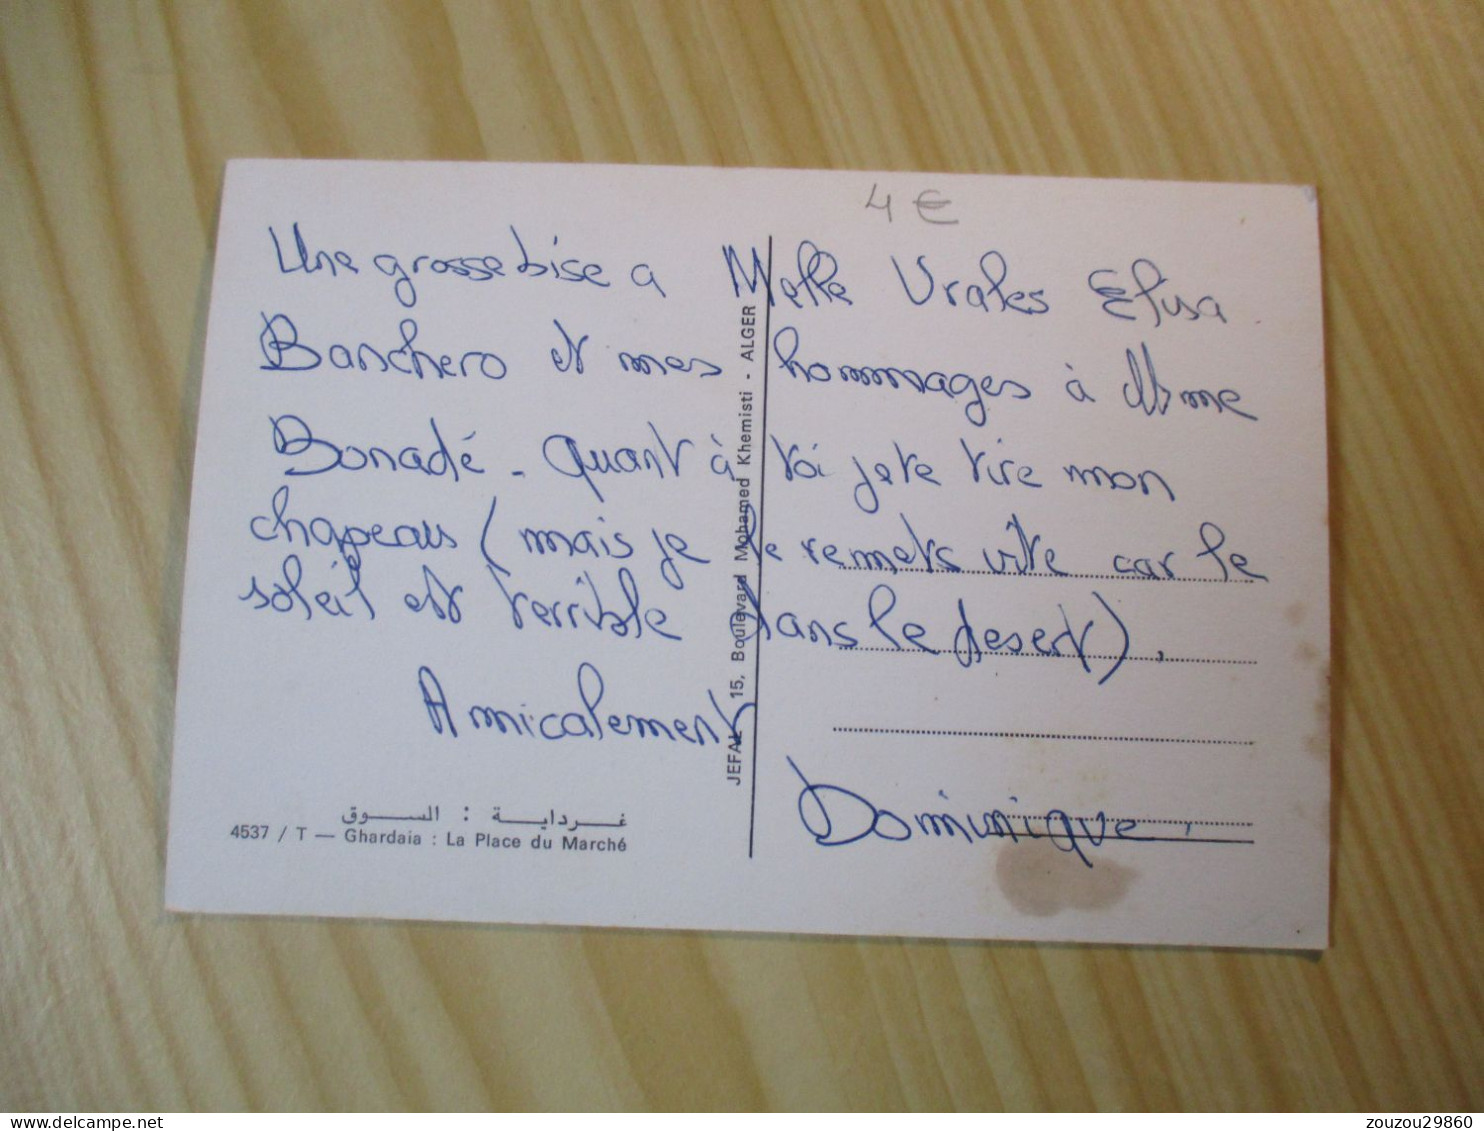 4 €
Une grosse bise a Melle Vrales Elisa
Banchero et mes hommages à Mme
Bonadé - quant à toi je te tire mon
chapeau (mais je le remets vite car le
soleil est terrible dans le desert).
Amicalement
Dominique
JEFAL 15, Boulevard Mohamed Khemisti - ALGER
غـردايـة : السـوق
4537 / T — Ghardaia : La Place du Marché
zouzou29860